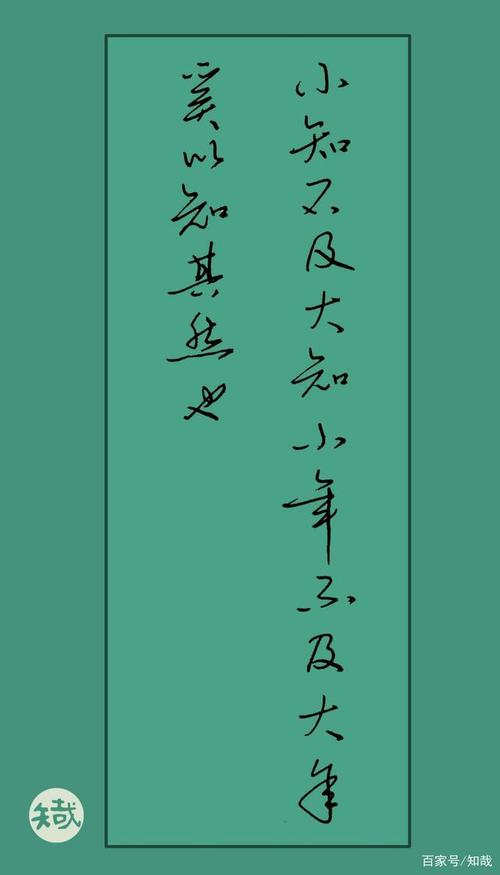 小知不及大知小年不及大年
奚以知其然也
知哉
百家号/知哉